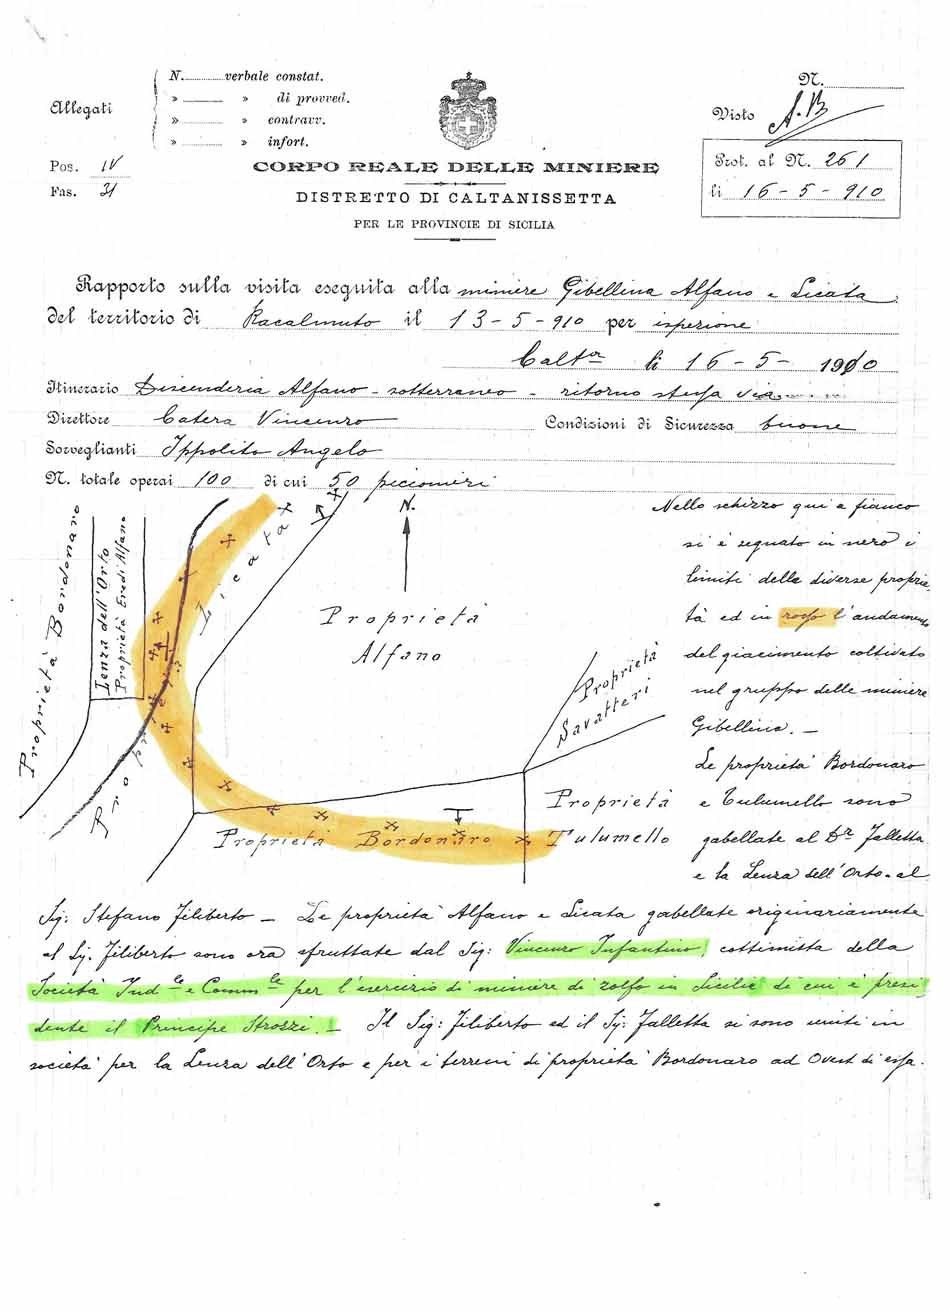 N. verbale constat.
» » di provved.
» » contravv.
» » infort.
Allegati
Pos. IV
Fas. 31
N.
Visto A.B
Prot. al N. 261
li 16-5-910
CORPO REALE DELLE MINIERE
DISTRETTO DI CALTANISSETTA
PER LE PROVINCIE DI SICILIA
Rapporto sulla visita eseguita alla miniere Gibellina Alfano e Licata
del territorio di Racalmuto il 13-5-910 per ispezione
Calt.a li 16-5-1910
Itinerario Discenderia Alfano - sotterraneo - ritorno stessa via
Direttore Catera Vincenzo Condizioni di Sicurezza buone
Sorveglianti Ippolito Angelo
N. totale operai 100 di cui 50 picconieri
N.
Proprietà Bordonaro
Lenza dell'Orto
Proprietà Eredi Alfano
Proprietà Licata
Proprietà
Alfano
Proprietà
Savatteri
Proprietà Bordonaro
Proprietà
Tulumello
Nello schizzo qui a fianco
si è segnato in nero i
limiti delle diverse proprie
tà ed in rosso l'andamento
del giacimento coltivato
nel gruppo delle miniere
Gibellina. -
Le proprietà Bordonaro
e Tulumello sono
gabellate al Dr. Falletta
e la Lenza dell'Orto - al
Sig: Stefano Filiberto - Le proprietà Alfano e Licata gabellate originariamente
al Sg. Filiberto sono ora sfruttate dal Sig: Vincenzo Infantino, cottimista della
Società Ind.le e Comm.le per l'esercizio di miniere di zolfo in Sicilia di cui è presi
dente il Principe Strozzi. - Il Sig: Filiberto ed il Sg: Falletta si sono uniti in
società per la Lenza dell'Orto e per i terreni di proprietà Bordonaro ad Ovest di essa.